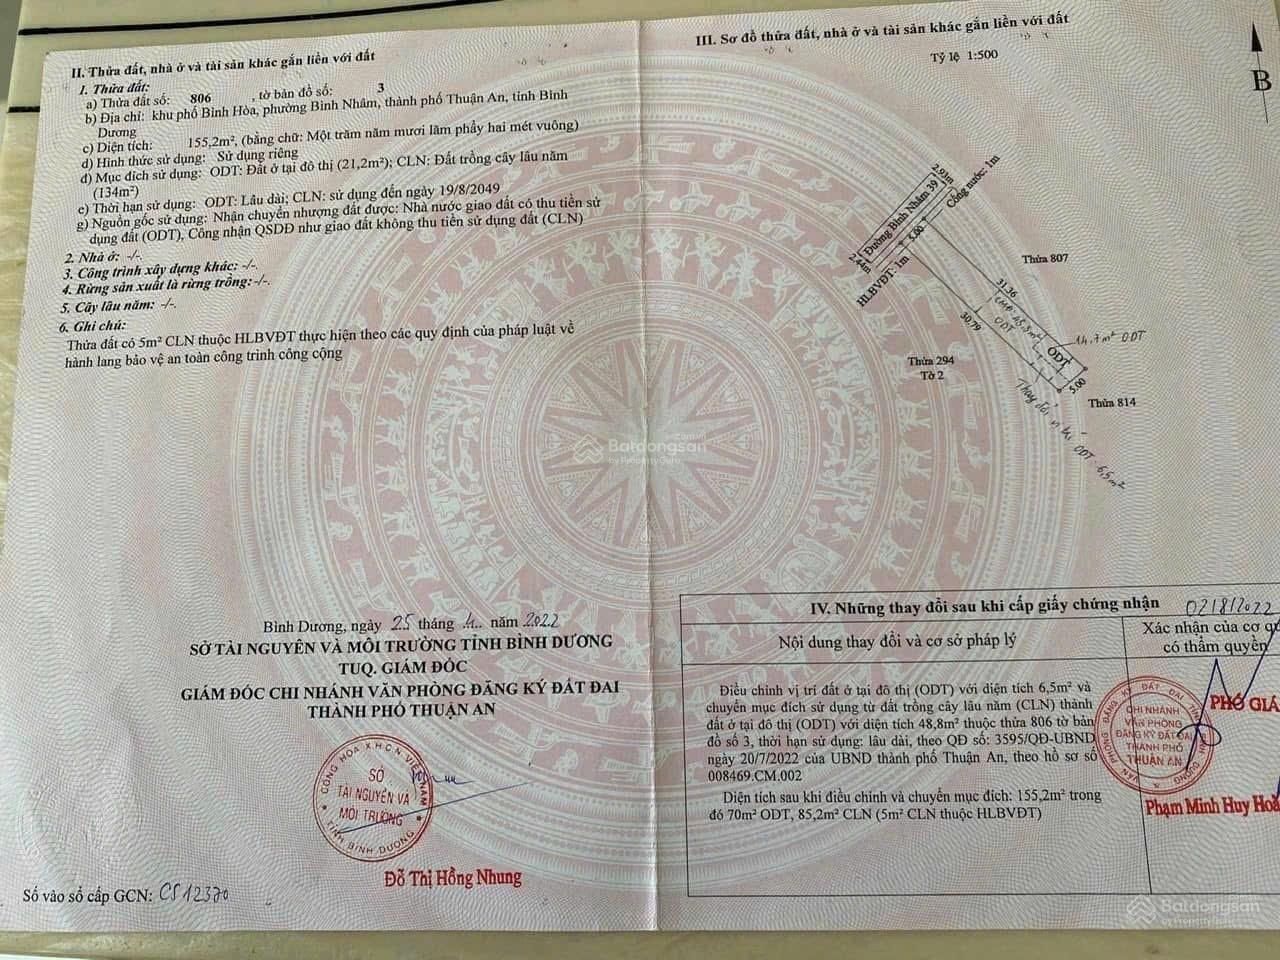 II. Thửa đất, nhà ở và tài sản khác gắn liền với đất
1. Thửa đất:
a) Thửa đất số: 806 , tờ bản đồ số: 3
b) Địa chỉ: khu phố Bình Hòa, phường Bình Nhâm, thành phố Thuận An, tỉnh Bình
Dương
c) Diện tích: 155,2m², (bằng chữ: Một trăm năm mươi lăm phẩy hai mét vuông)
d) Hình thức sử dụng: Sử dụng riêng
đ) Mục đích sử dụng: ODT: Đất ở tại đô thị (21,2m²); CLN: Đất trồng cây lâu năm
(134m²)
e) Thời hạn sử dụng: ODT: Lâu dài; CLN: sử dụng đến ngày 19/8/2049
g) Nguồn gốc sử dụng: Nhận chuyển nhượng đất được: Nhà nước giao đất có thu tiền sử
dụng đất (ODT), Công nhận QSDĐ như giao đất không thu tiền sử dụng đất (CLN)
2. Nhà ở: -/-.
3. Công trình xây dựng khác: -/-.
4. Rừng sản xuất là rừng trồng:-/-.
5. Cây lâu năm: -/-.
6. Ghi chú:
Thửa đất có 5m² CLN thuộc HLBVĐT thực hiện theo các quy định của pháp luật về
hành lang bảo vệ an toàn công trình công cộng
Bình Dương, ngày 25 tháng 4 năm 2022
SỞ TÀI NGUYÊN VÀ MÔI TRƯỜNG TỈNH BÌNH DƯƠNG
TUQ. GIÁM ĐỐC
GIÁM ĐỐC CHI NHÁNH VĂN PHÒNG ĐĂNG KÝ ĐẤT ĐAI
THÀNH PHỐ THUẬN AN
CỘNG HÒA X.H.C.N VIỆT NAM
SỞ
TÀI NGUYÊN VÀ
MÔI TRƯỜNG
TỈNH BÌNH DƯƠNG
Đỗ Thị Hồng Nhung
Số vào sổ cấp GCN: CS12370
III. Sơ đồ thửa đất, nhà ở và tài sản khác gắn liền với đất
Tỷ lệ 1:500
B
2.93m
Đường Bình Nhâm 39
Cống nước: 1m
2.44m
5.00
HLBVĐT: 1m
Thửa 807
31.36
CMĐ 48,8m²
ODT
30.79
14,7m² ODT
ODT
Thửa 294
Tờ 2
5.00
Thửa 814
Thay đổi vị trí ODT 6,5m²
Batdongsan
by PropertyGuru
IV. Những thay đổi sau khi cấp giấy chứng nhận
02/8/2022
Nội dung thay đổi và cơ sở pháp lý
Xác nhận của cơ qu
có thẩm quyền
Điều chỉnh vị trí đất ở tại đô thị (ODT) với diện tích 6,5m² và
chuyển mục đích sử dụng từ đất trồng cây lâu năm (CLN) thành
đất ở tại đô thị (ODT) với diện tích 48,8m² thuộc thửa 806 tờ bản
đồ số 3, thời hạn sử dụng: lâu dài, theo QĐ số: 3595/QĐ-UBND
ngày 20/7/2022 của UBND thành phố Thuận An, theo hồ sơ số
008469.CM.002
Diện tích sau khi điều chỉnh và chuyển mục đích: 155,2m² trong
đó 70m² ODT, 85,2m² CLN (5m² CLN thuộc HLBVĐT)
PHÓ GIÁ
CHI NHÁNH
VĂN PHÒNG
ĐĂNG KÝ ĐẤT ĐAI
THÀNH PHỐ
THUẬN AN
Phạm Minh Huy Hoà
Batdongsan
by PropertyGuru